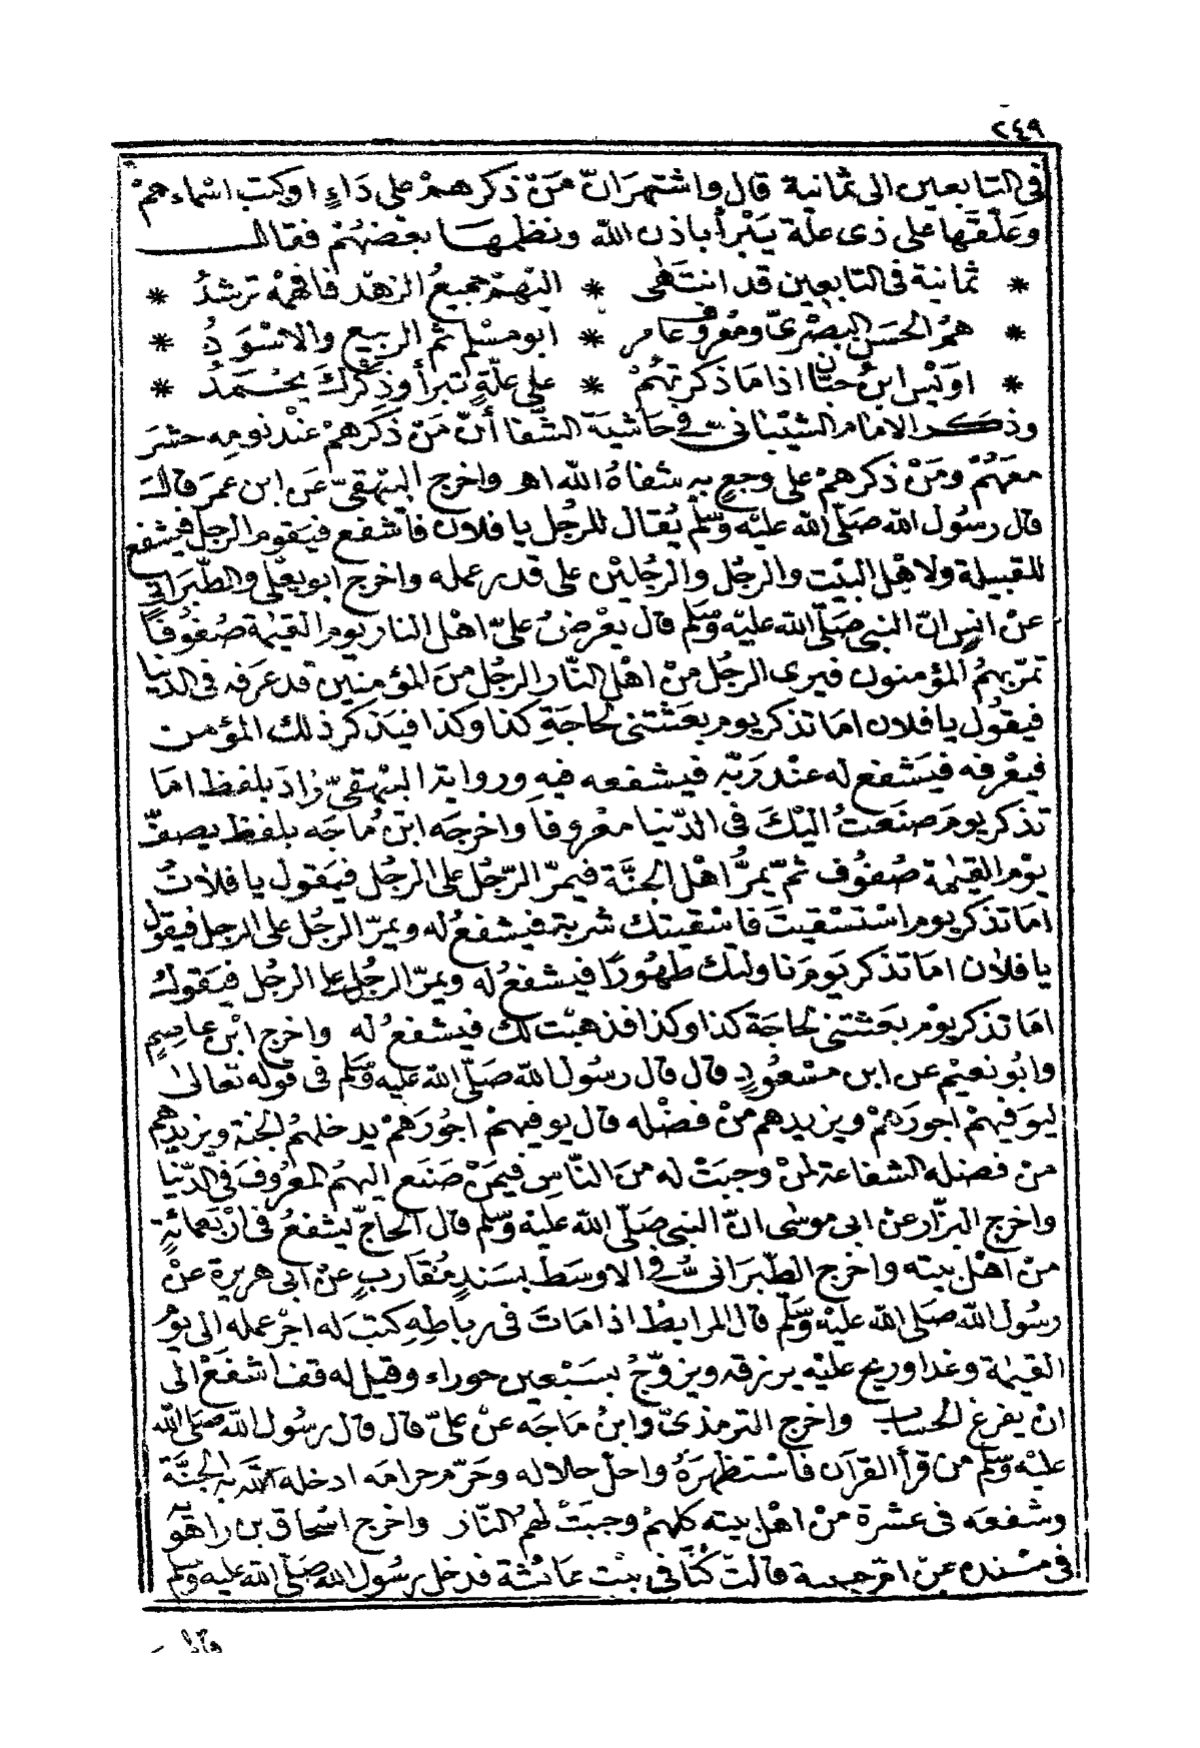 ٢٤٩
فى التابعين الى ثمانية قال واشتهر ان من ذكرهم على داء او كتب اسماءهم
وعلقها على ذى علة يبرأ باذن الله ونظمها بعضهم فقال
* ثمانية فى التابعين قد انتهى * اليهم جميع الزهد فافهمه ترشد *
* هم الحسن البصرى ومعروف عامر * ابو مسلم ثم الربيع والاسود *
* اويس ابن حبان اذا ما ذكرتهم * على علة تبرأ وذكرك يحمد *
وذكر الامام الشيبانى فى حاشية الشفا أن من ذكرهم عند نومه حشر
معهم ومن ذكرهم على وجع به شفاه الله اهـ واخرج البيهقى عن ابن عمر قال
قال رسول الله صلى الله عليه وسلم يقال للرجل يا فلان فاشفع فيقوم الرجل فيشفع
للقبيلة ولاهل البيت والرجل والرجلين على قدر عمله واخرج ابو يعلى والطبرانى
عن انس ان النبى صلى الله عليه وسلم قال يعرض علىّ اهل النار يوم القيمة صفوفا
تمر بهم المؤمنون فيرى الرجل من اهل النار الرجل من المؤمنين قد عرفه فى الدنيا
فيقول يا فلان اما تذكر يوم بعثتنى لحاجة كذا وكذا فيذكر ذلك المؤمن
فيعرفه فيشفع له عند ربه فيشفعه فيه ورواية البيهقى زاد بلفظ اما
تذكر يوم صنعت اليك فى الدنيا معروفا واخرجه ابن ماجه بلفظ يصف
يوم القيمة صفوف ثم يمر اهل الجنة فيمر الرجل على الرجل فيقول يا فلان
اما تذكر يوم استسقيت فاسقيتك شربة فيشفع له ويمر الرجل على الرجل فيقول
يا فلان اما تذكر يوم ناولتك طهورا فيشفع له ويمر الرجل على الرجل فيقول
اما تذكر يوم بعثتنى لحاجة كذا وكذا فذهبت لك فيشفع له واخرج ابن عاصم
وابو نعيم عن ابن مسعود قال قال رسول الله صلى الله عليه وسلم فى قوله تعالى
ليوفيهم اجورهم ويزيدهم من فضله قال يوفيهم اجورهم يدخلهم الجنة ويزيدهم
من فضله الشفاعة لمن وجبت له من الناس فيمن صنع اليهم المعروف فى الدنيا
واخرج البزار عن ابى موسى ان النبى صلى الله عليه وسلم قال الحاج يشفع فى اربعمائة
من اهل بيته واخرج الطبرانى فى الاوسط بسند مقارب عن ابى هريرة عن
رسول الله صلى الله عليه وسلم قال المرابط اذا مات فى رباطه كتب له اجر عمله الى يوم
القيمة وغدا وريح عليه برزقه ويزوّج بسبعين حوراء وقيل له قف اشفع الى
ان يفرغ الحساب واخرج الترمذى وابن ماجه عن على قال قال رسول الله صلى الله
عليه وسلم من قرأ القرآن فاستظهره واحل حلاله وحرّم حرامه ادخله الله به الجنة
وشفعه فى عشرة من اهل بيته كلهم وجبت لهم النار واخرج اسحاق بن راهويه
فى مسنده عن ام حبيبة قالت كنا فى بيت عائشة فدخل رسول الله صلى الله عليه وسلم